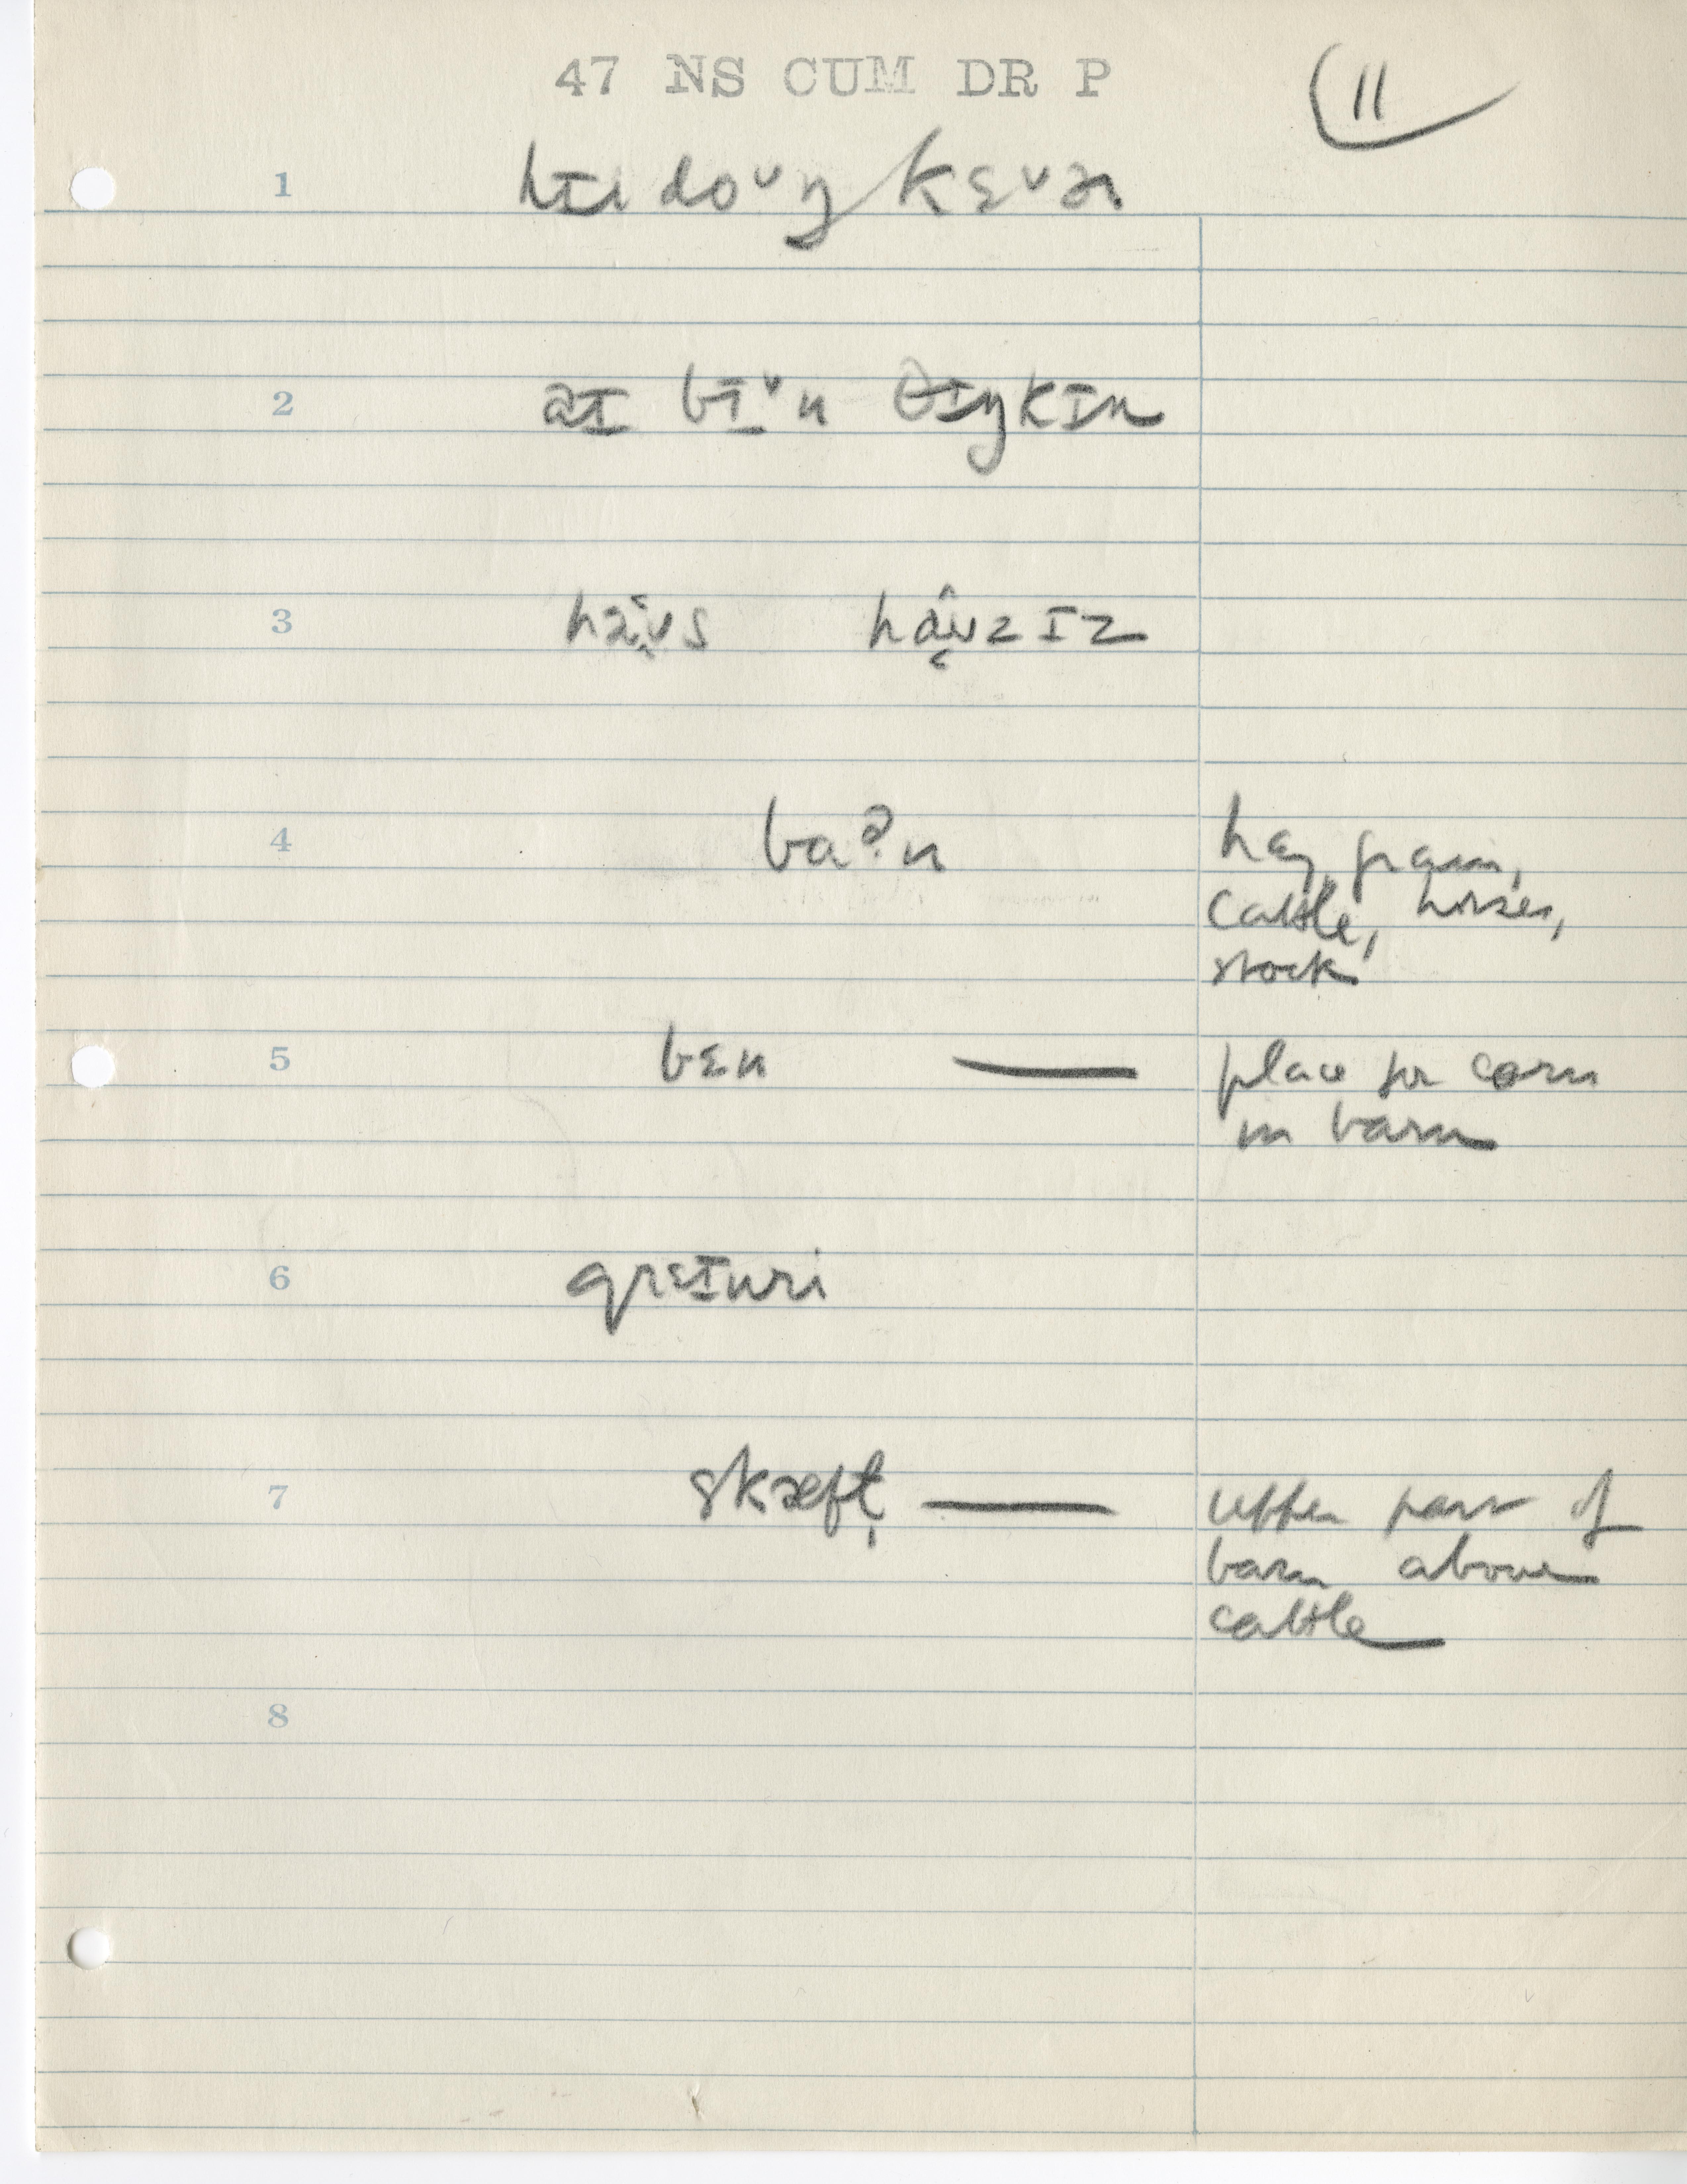 47 NS CUM DR P
11
1
2 bɪ̠ˇn θɪŋkɪn
3
4 ba ə̣ n hay, grain,
cattle, horses,
stock
5 bɛn — place for corn
in barn
6 grɛɪnri
7 skæft̩ — upper part of
barn above
cattle
8